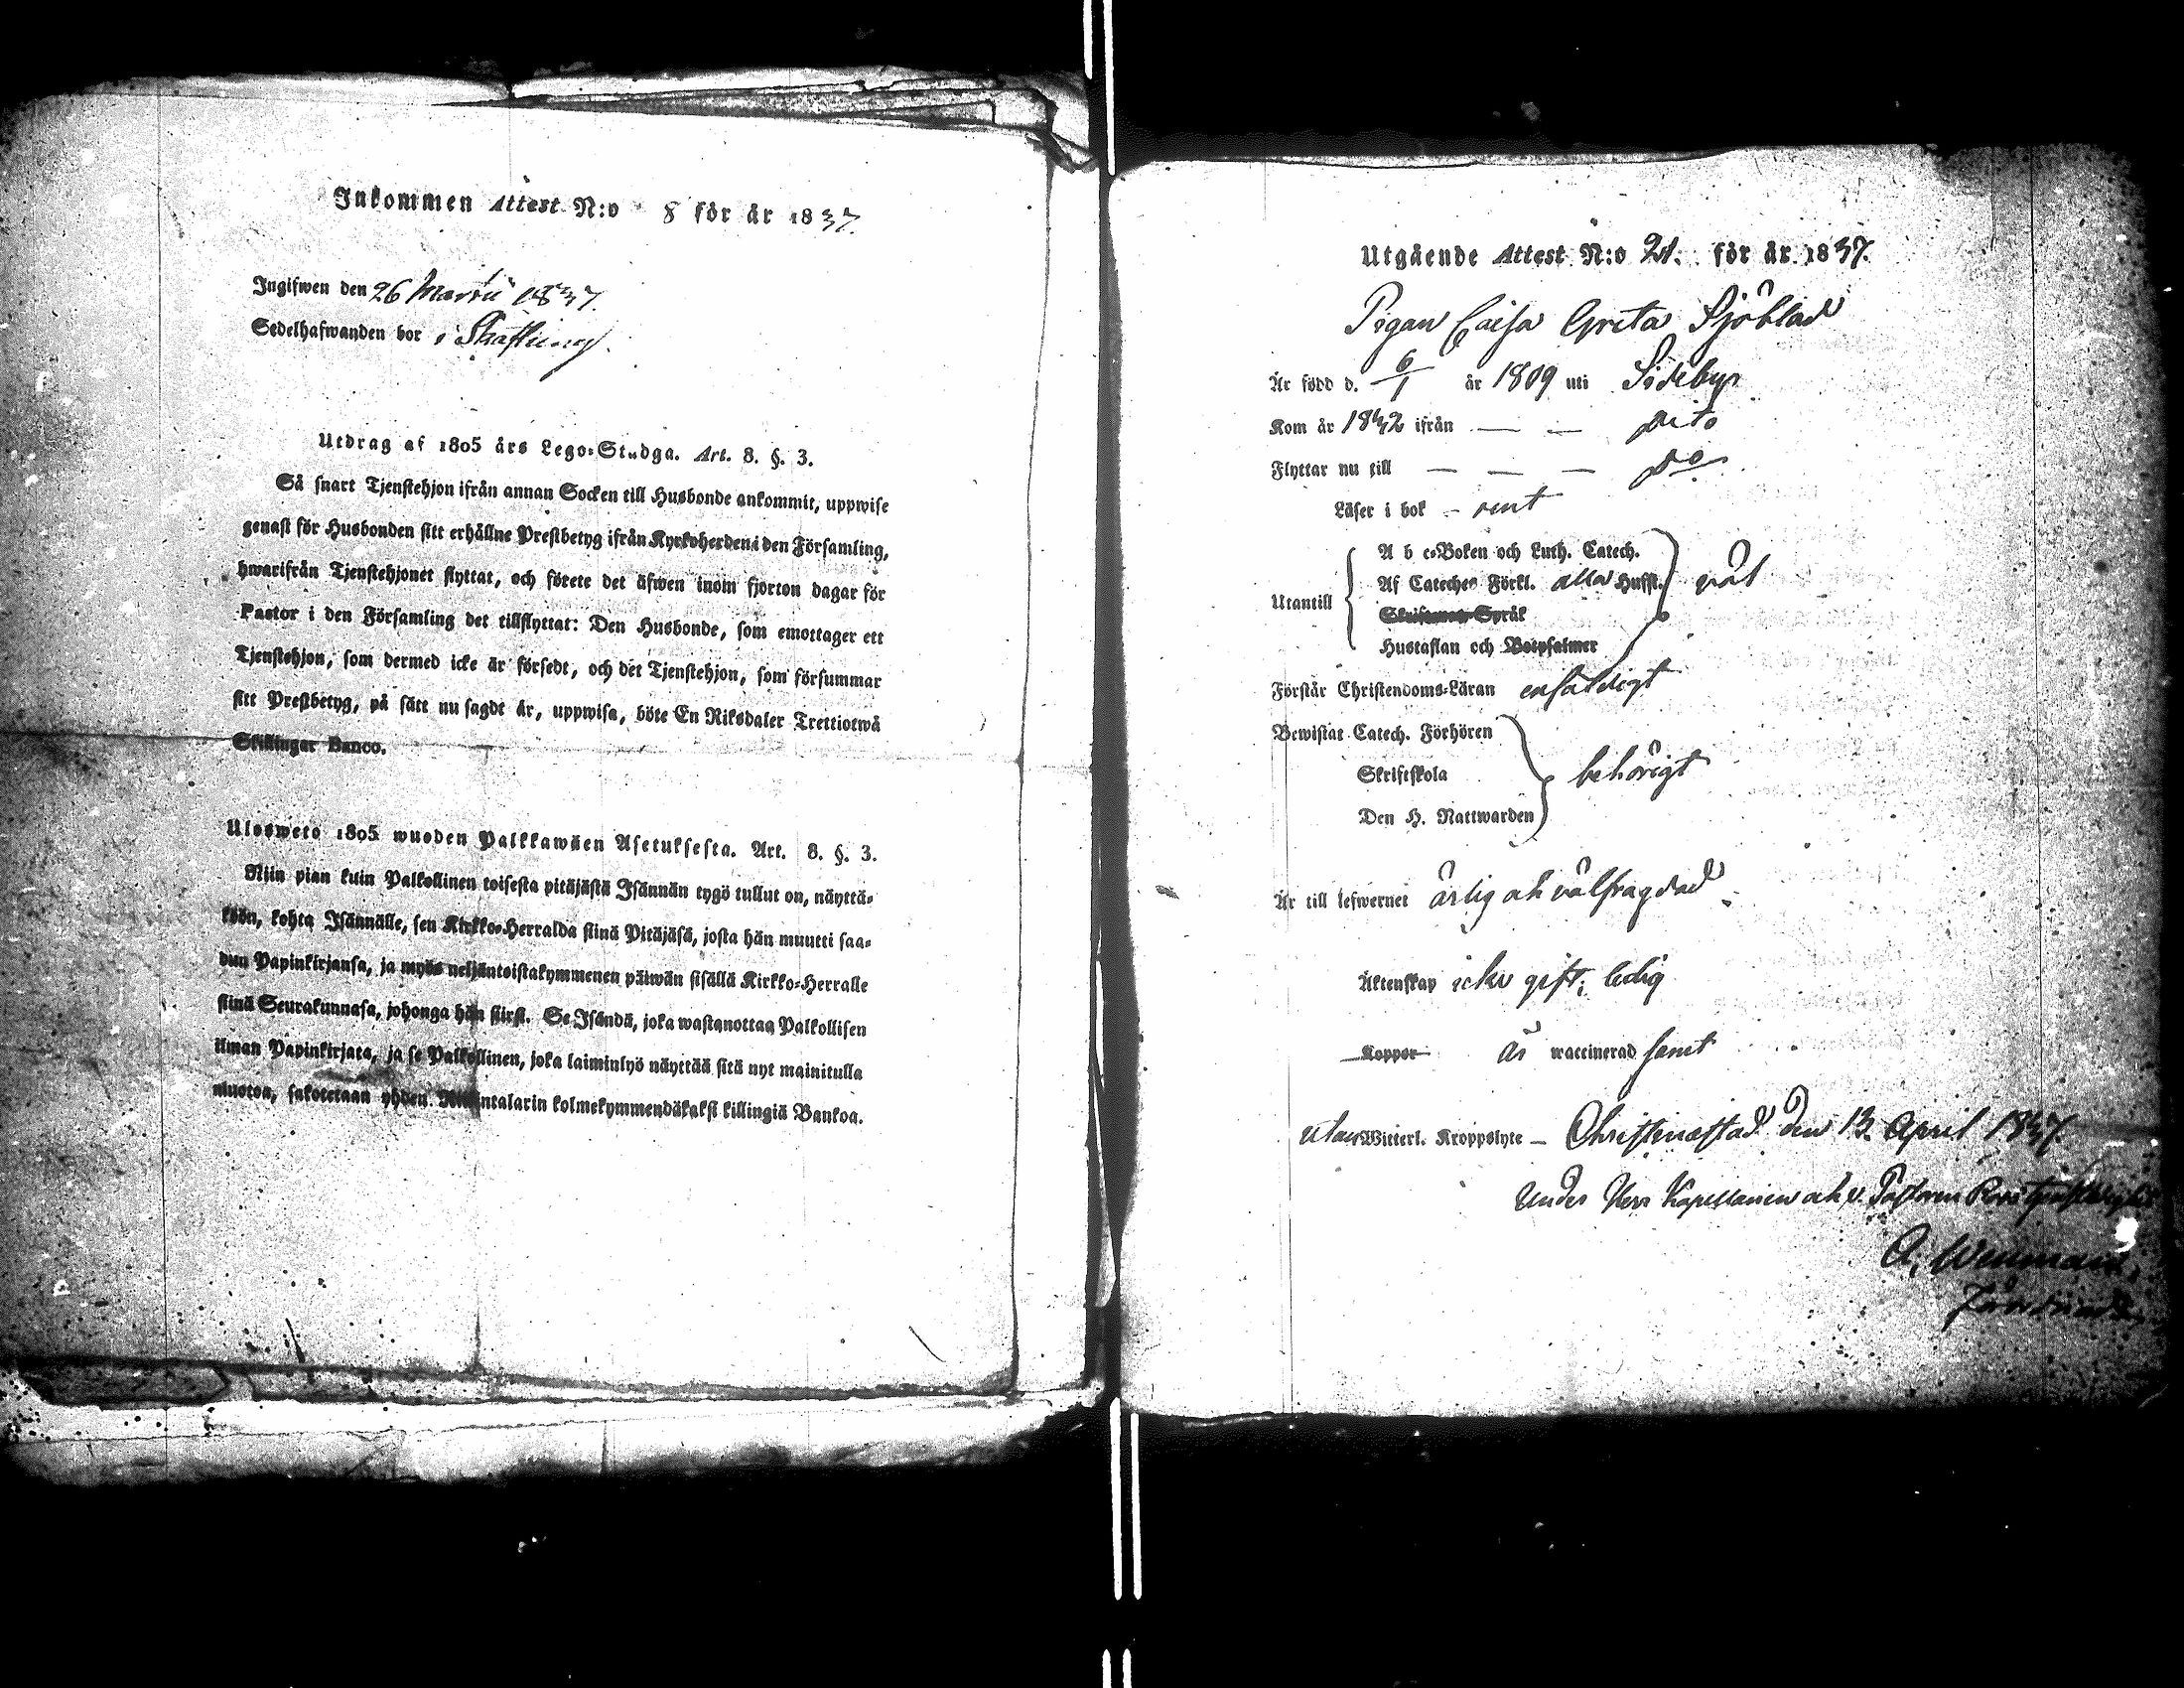 Inkommen Attest N:o 8 för år 1837.
Ingifwen den 26 Martii 1837.
Sedelhafwanden bor i
Utdrag af 1805 års Lego-Stadga. Art. 8. §. 3.
Så snart Tjenstehjon ifrån annan Socken till Husbonde ankommit, uppwise
genast för Husbonden sitt erhållne Prestbetyg ifrån Kyrkoherden i den Församling,
hwarifrån Tjenstehjonet flyttat, och förete det äfwen inom fjorton dagar för
Pastor i den Församling det tillflyttat: Den Husbonde, som emottager ett
Tjenstehjon, som dermed icke är försedt, och det Tjenstehjon, som försummar
sitt Prestbetyg, på sätt nu sagdt är, uppwisa, böte En Riksdaler Trettiotwå
Skillingar Banco.
Ulosweto 1805 wuoden Palkkawäen Asetuksesta. Art. 8. §. 3.
Niin pian kuin Palkollinen toisesta pitäjästä Isännän tygö tullut on, näyttä-
köön, kohta Isännälle, sen Kirkko-Herralda siinä Pitäjäsä, josta hän muutti saa-
dun Papinkirjansa, ja myös neljäntoistakymmenen päiwän sisällä Kirkko-Herralle
siinä Seurakunnasa, johonga hän siirsi. Se Isändä, joka wastanottaa Palkollisen
ilman Papinkirjata, ja se Palkollinen, joka laiminlyö näyttää sitä nyt mainitulla
muotoa, sakotetaan yhden Riikintalarin kolmekymmendäkaksi killingiä Bankoa.
Utgående Attest N:o 21. för år 1837.
Pigan Caisa Greta Sjöblad
Är född d. 6/1 år 1809 uti Sideby
Kom år 1832 ifrån — — dito
Flyttar nu till — — — do
Läser i bok - rent
A b c-Boken och Luth. Catech.
Af Cateches Förkl. alla Hufst. väl
Utantill
Skriftenes Språk
Hustaflan och Botpsalmer
Förstår Christendoms-Läran enfaldigt
Bewistat Catech. Förhören
Skriftskola behörigt
Den H. Nattwarden
Är till lefwernet ärlig och välfrägdad
Äktenskap icke gift; ledig
Koppor är waccinerad samt
utan Witterl. Kroppslyte — Christinæstad den 13. April 1837
Under Herr Kapellanen och v. Pastoren
A. Wenman